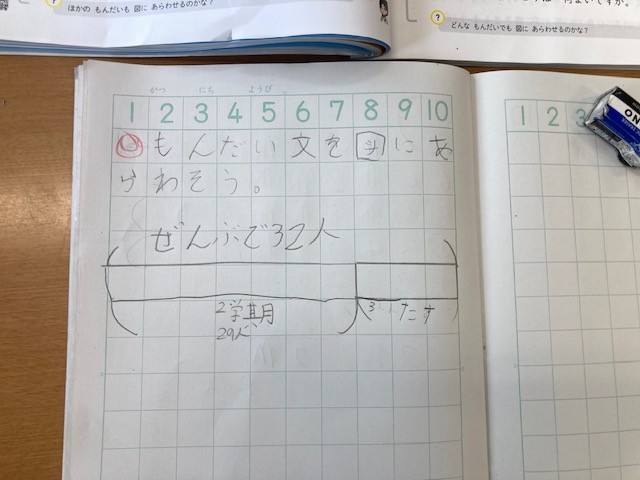 ほかの もんだいも 図に あらわせるのかな?
どんな もんだいでも 図に あらわせるのかな?
がつ にち ようび
1 2 3 4 5 6 7 8 9 10
1 2 3
もんだい文を図にあ
らわそう。
ぜんぶで32人
2学期
29人
たす